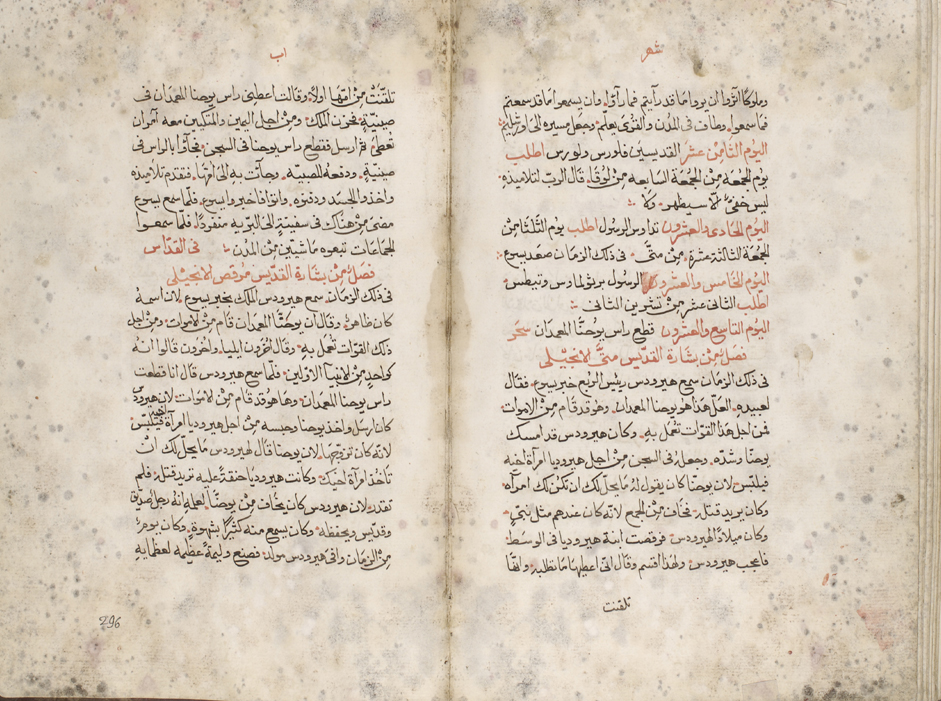 شهر
وملوكًا اثروا ان يروا ما قد رأيتم فما رأوا. وان يسمعوا ما قد سمعتم
فما سمعوا. وطاف في المدن والقرى يعلم. وجعل مسيره الى اورشليم
اليوم الثامن عشر القديسين فلورس ولورس اطلب
يوم الجمعه من الجمعة السابعه من لوقا. قال الرب لتلاميذه
ليس خفي الا سيظهر. ولا
اليوم الحادي والعشرون تداوس الرسول اطلب يوم الثلثا من
الجمعة الثالثة عشرة من متى. في ذلك الزمان صعد يسوع
اليوم الخامس والعشرون الرسول برثولماوس وتيطس.
اطلب الثاني عشر من تشرين الثاني
اليوم التاسع والعشرون قطع راس يوحنا المعمدان سحر
فصل من بشارة القديس متى الانجيلي
في ذلك الزمان سمع هيرودس رييس الربع خبر يسوع. فقال
لعبيده. العل هذا هو يوحنا المعمدان. وهو قد قام من الاموات.
فمن اجل هذا القوات تعمل به. وكان هيرودس قد امسك
يوحنا وشده. وجعله في السجن من اجل هيروديا امرأة اخيه
فيلبس. لان يوحنا كان يقول له ما يحل لك ان تكن لك امرأه
وكان يريد قتله. فخاف من الجمع لانه كان عندهم مثل نبي.
وكان ميلاد الهيرودس. فرقصت ابنة هيروديا في الوسط.
فاعجب هيرودس. ولهذا اقسم وقال اني اعطيها ما تطلبه. وانها
تلقنت
اب
تلقنت من امها اولاً. وقالت اعطني راس يوحنا المعمدان في
صينية. فحزن الملك. ومن اجل اليمين والمتكين معه أمر ان
تعطى. ثم ارسل فقطع راس يوحنا في السجن. فجاؤا بالراس في
صينية. ودفعه للصبية. وجآت به الى امها. فتقدم تلاميذه
واخذوا الجسد ودفنوه. واتوا فاخبروا يسوع. فلما سمع يسوع
مضى من هناك في سفينة الى البرية منفردًا. فلما سمعوا
الجماعات تبعوه ماشيين من المدن في القداس
فصل من بشارة القديس مرقص الانجيلي
في ذلك الزمان سمع هيرودس الملك بخبر يسوع. لان اسمه
كان ظاهر. وقال ان يوحنا المعمدان قام من الاموات. ومن اجل
ذلك القوات تعمل به. وقال اخرون ايليا. واخرون قالوا انه
كواحد من الانبيا الاولين. فلما سمع هيرودس قال انا قطعت
راس يوحنا المعمدان. وها هو قد قام من الاموات. لان هيرودس
كان ارسل واخذ يوحنا وحبسه من اجل هيروديا امرأة اخيه فيلبس
لانه كان تزوجها. لان يوحنا قال لهيرودس ما يحل لك ان
تاخذ امرأة اخيك. وكانت هيروديا حنقة عليه تريد قتله. فلم
تقدر. لان هيرودس كان يخاف من يوحنا لعلمه انه رجل صديق
وقديس ويحفظه. وكان يسمع منه كثيرًا بشهوة. وكان يوم
من الزمان وافى هيرودس مولد. فصنع وليمة عظيمه لعظمايه
296